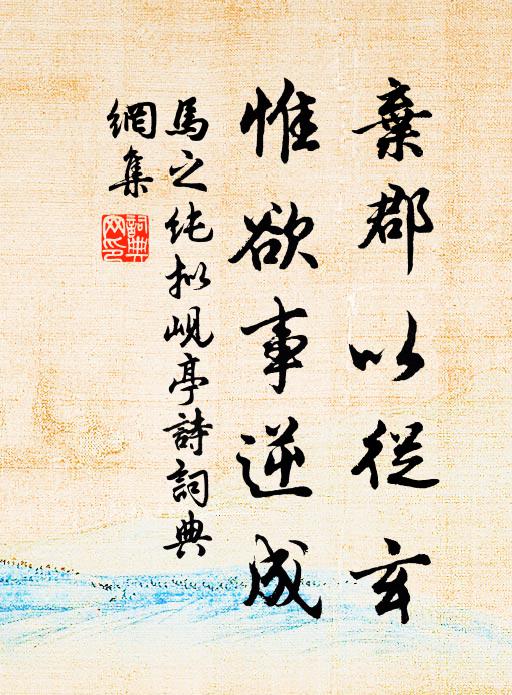 棄郡以從玄
惟欲事逆成
馬之純拟峴亭詩詞典
網集
詞典
网印